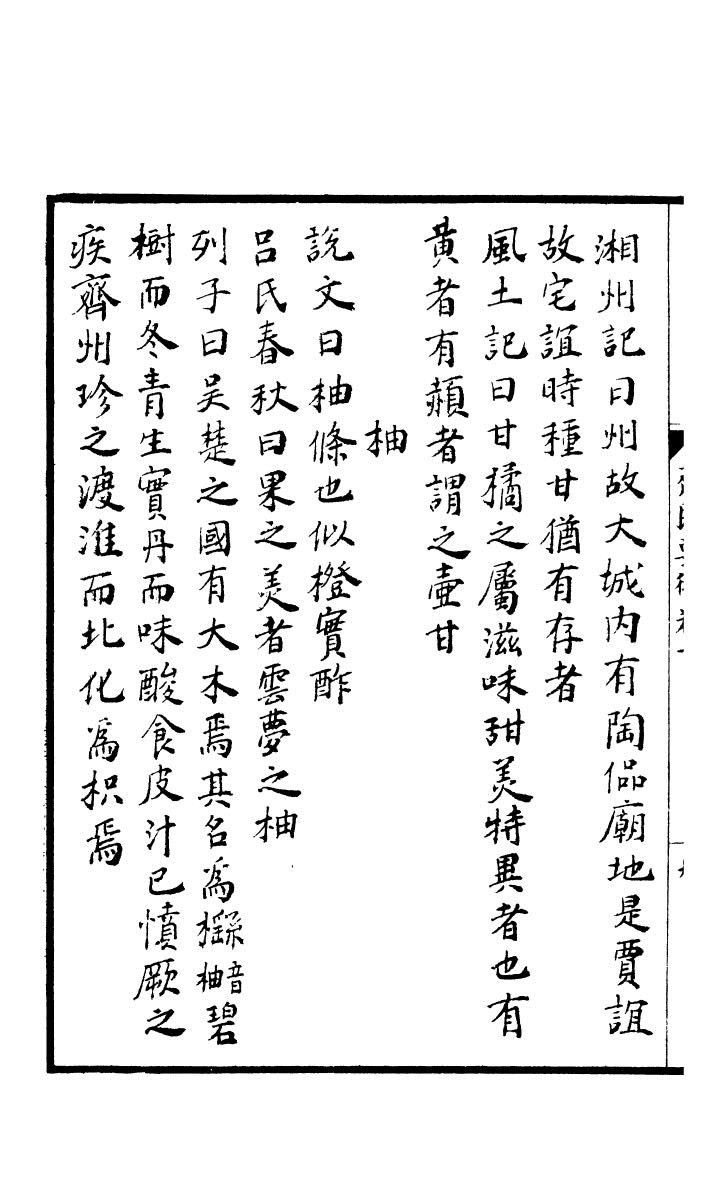 湘州記曰州故大城内有陶侃廟地是賈誼
故宅誼時種甘猶有存者
風土記曰甘橘之屬滋味甜羙特異者也有
黄者有頳者謂之壷甘
柚
説文曰柚條也似橙實酢
吕氏春秋曰果之羙者雲夢之柚
列子曰吴楚之國有大木焉其名爲櫾音柚碧
樹而冬青生實丹而味酸食皮汁已憤厥之
疾齊州珍之渡淮而北化爲枳焉